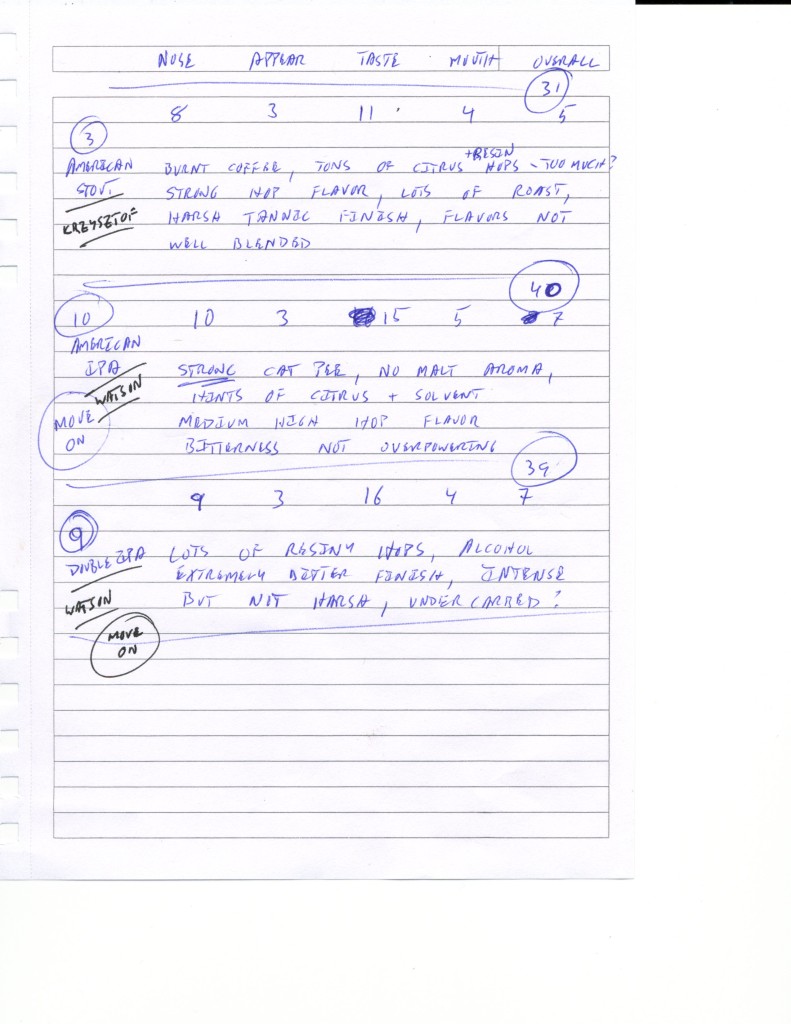 NOSE APPEAR TASTE MOUTH OVERALL
31
8 3 11 4 5
3
+ RESIN
AMERICAN BURNT COFFEE, TONS OF CITRUS HOPS - TOO MUCH?
STOUT STRONG HOP FLAVOR, LOTS OF ROAST,
KRZYSZTOF HARSH TANNIC FINISH, FLAVORS NOT
WELL BLENDED
40
10 10 3 15 5 7
AMERICAN
IPA STRONG CAT PEE, NO MALT AROMA,
WATSON HINTS OF CITRUS + SOLVENT
MOVE MEDIUM HIGH HOP FLAVOR
ON BITTERNESS NOT OVERPOWERING
39
9 3 16 4 7
9
DOUBLE IPA LOTS OF RESINY HOPS, ALCOHOL
EXTREMELY BITTER FINISH, INTENSE
WATSON BUT NOT HARSH, UNDER CARBED?
MOVE
ON